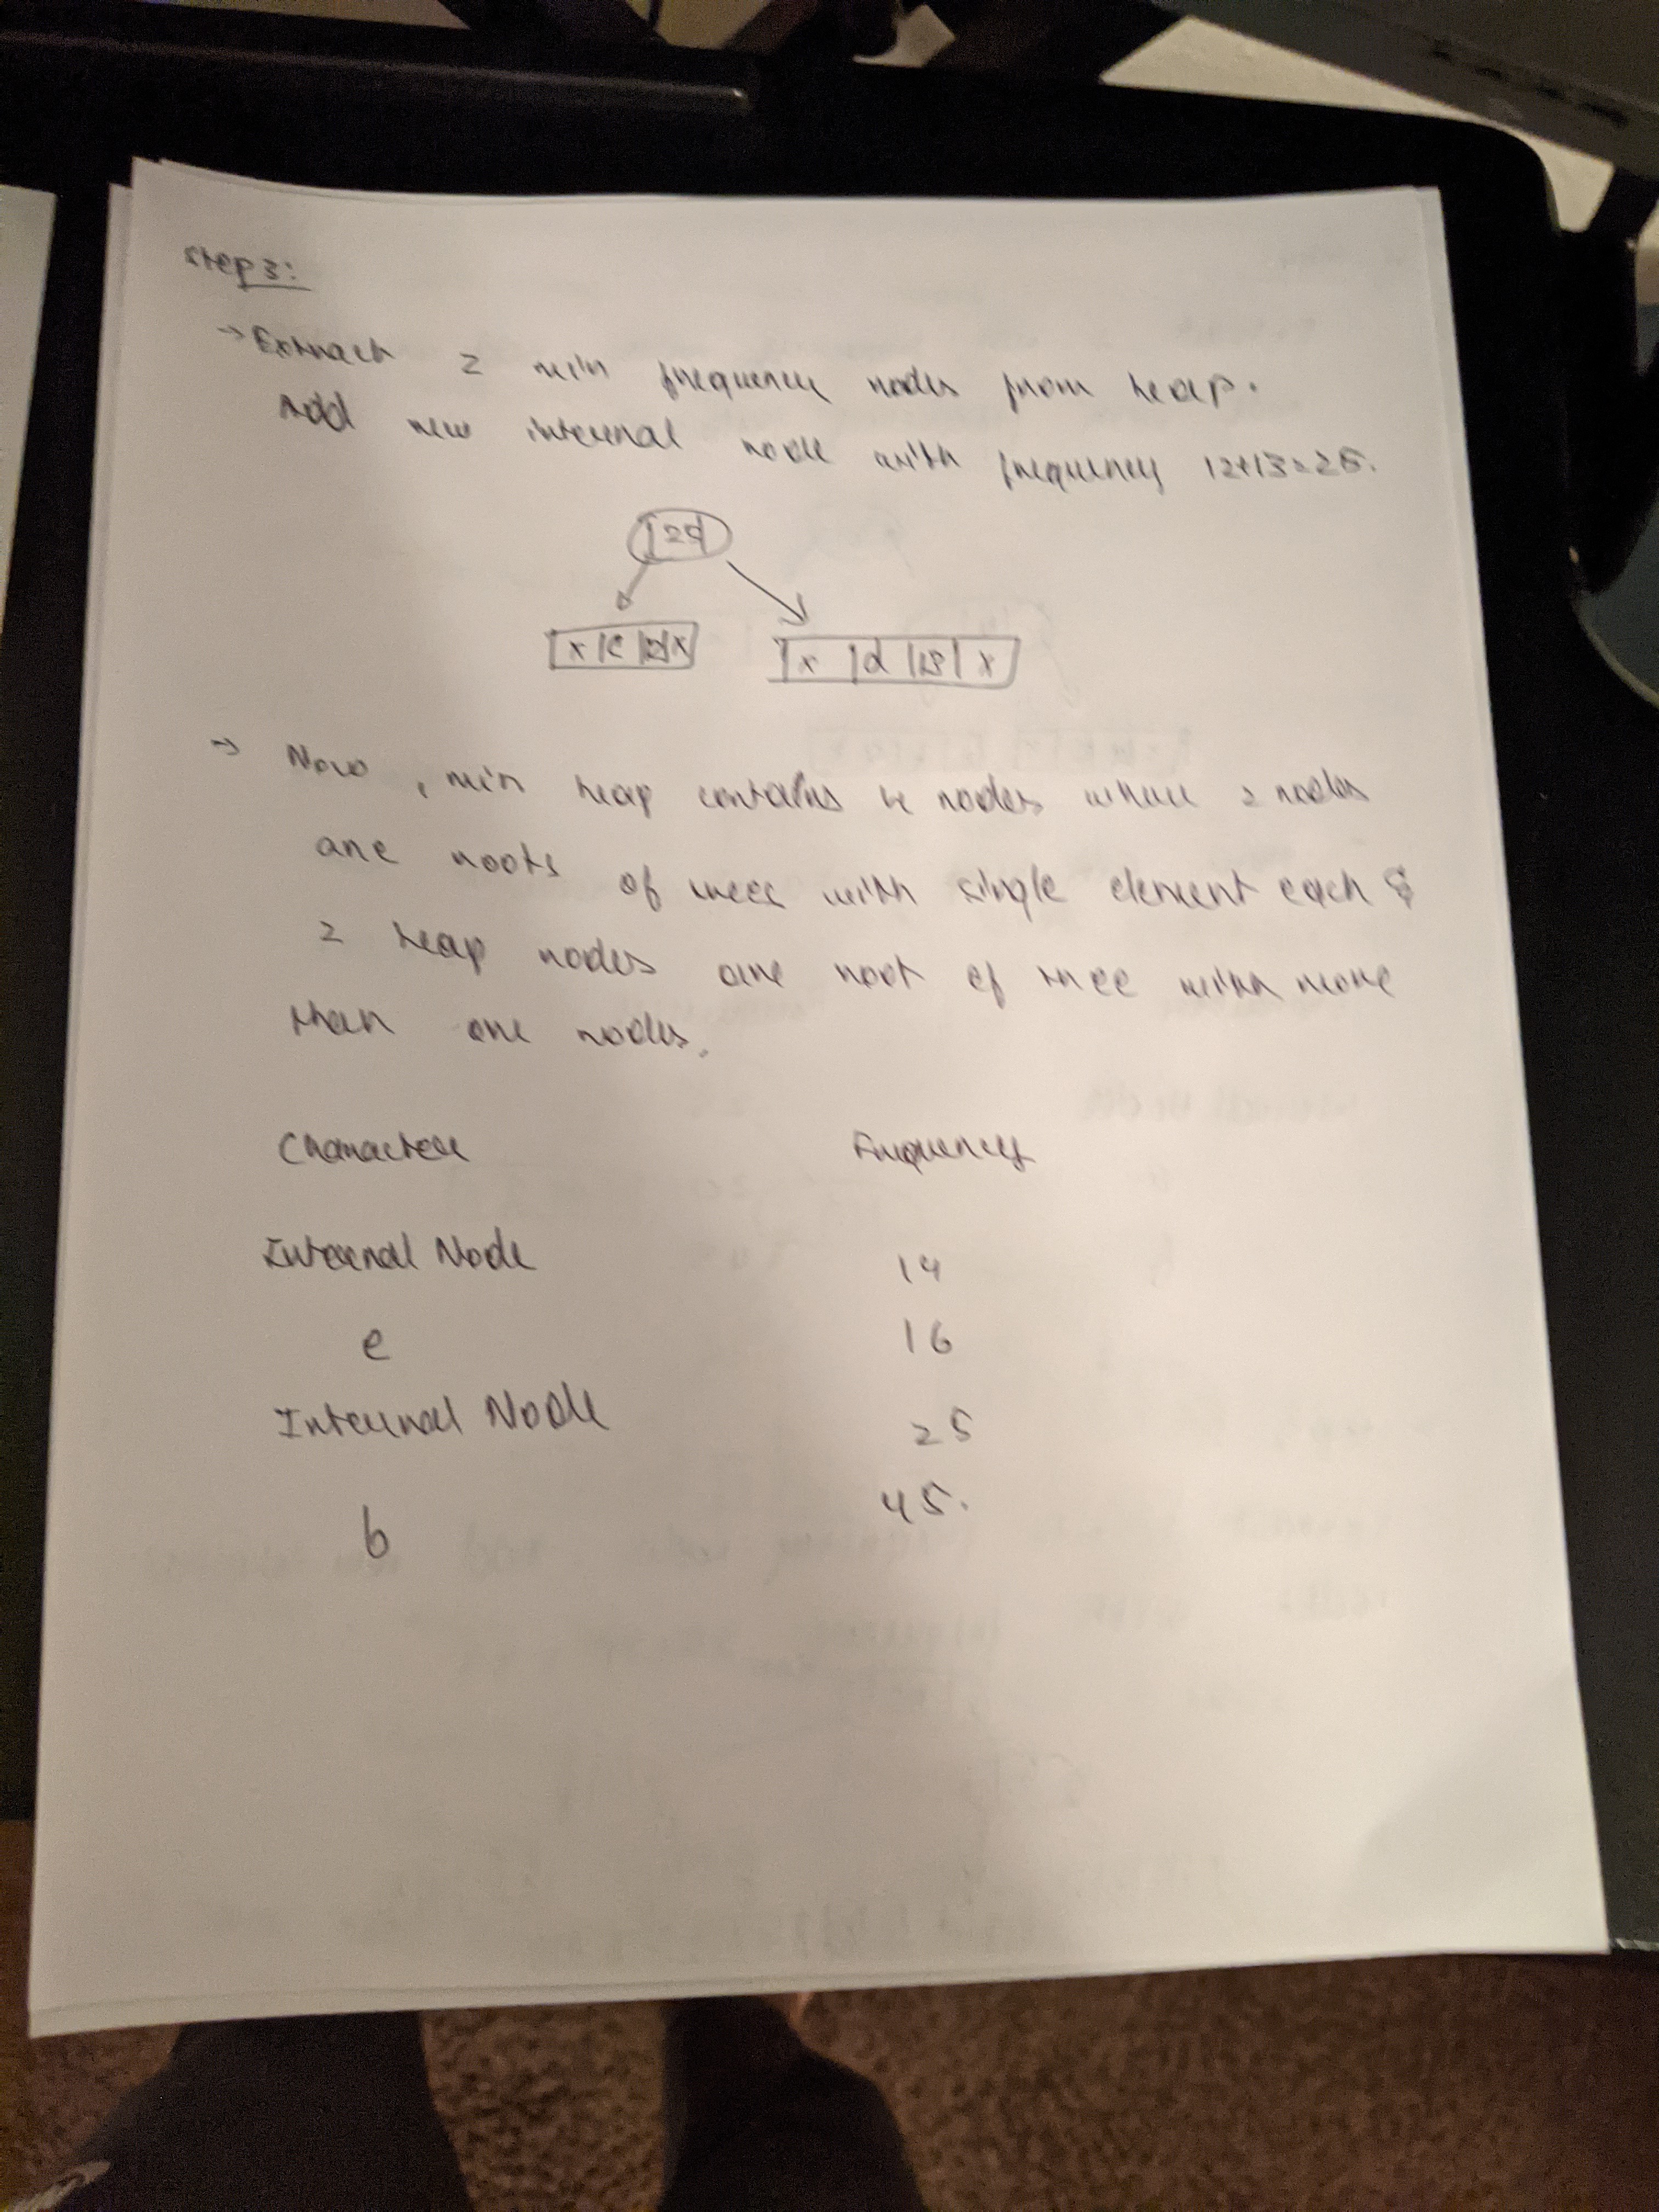 Step 3:
→ Extract 2 min frequency nodes from heap.
Add new internal node with frequency 12+13=25.
|25|
|x|c|12|x| |x|d|13|x|
→ Now, min heap contains 4 nodes where 2 nodes
are roots of trees with single element each &
2 heap nodes are root of tree with more
than one nodes.
Character Frequency
Internal Node 14
e 16
Internal Node 25
b 45.